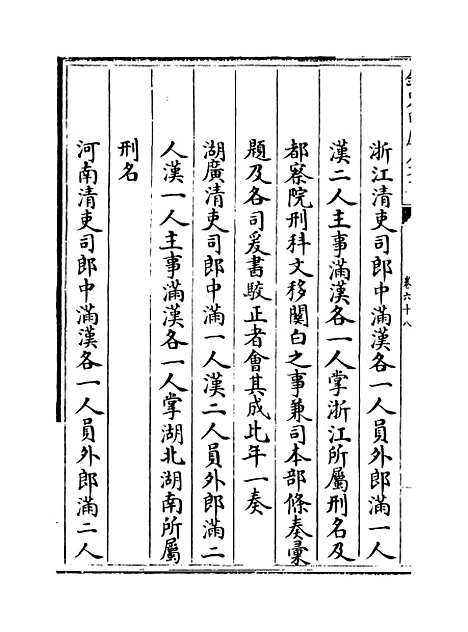 卷六十八
浙江清吏司郎中滿漢各一人員外郎滿一人
漢二人主事滿漢各一人掌浙江所屬刑名及
都察院刑科文移關白之事兼司本部條奏彙
題及各司爰書駁正者會其成比年一奏
湖廣清吏司郎中滿一人漢二人員外郎滿二
人漢一人主事滿漢各一人掌湖北湖南所屬
刑名
河南清吏司郎中滿漢各一人員外郎滿二人